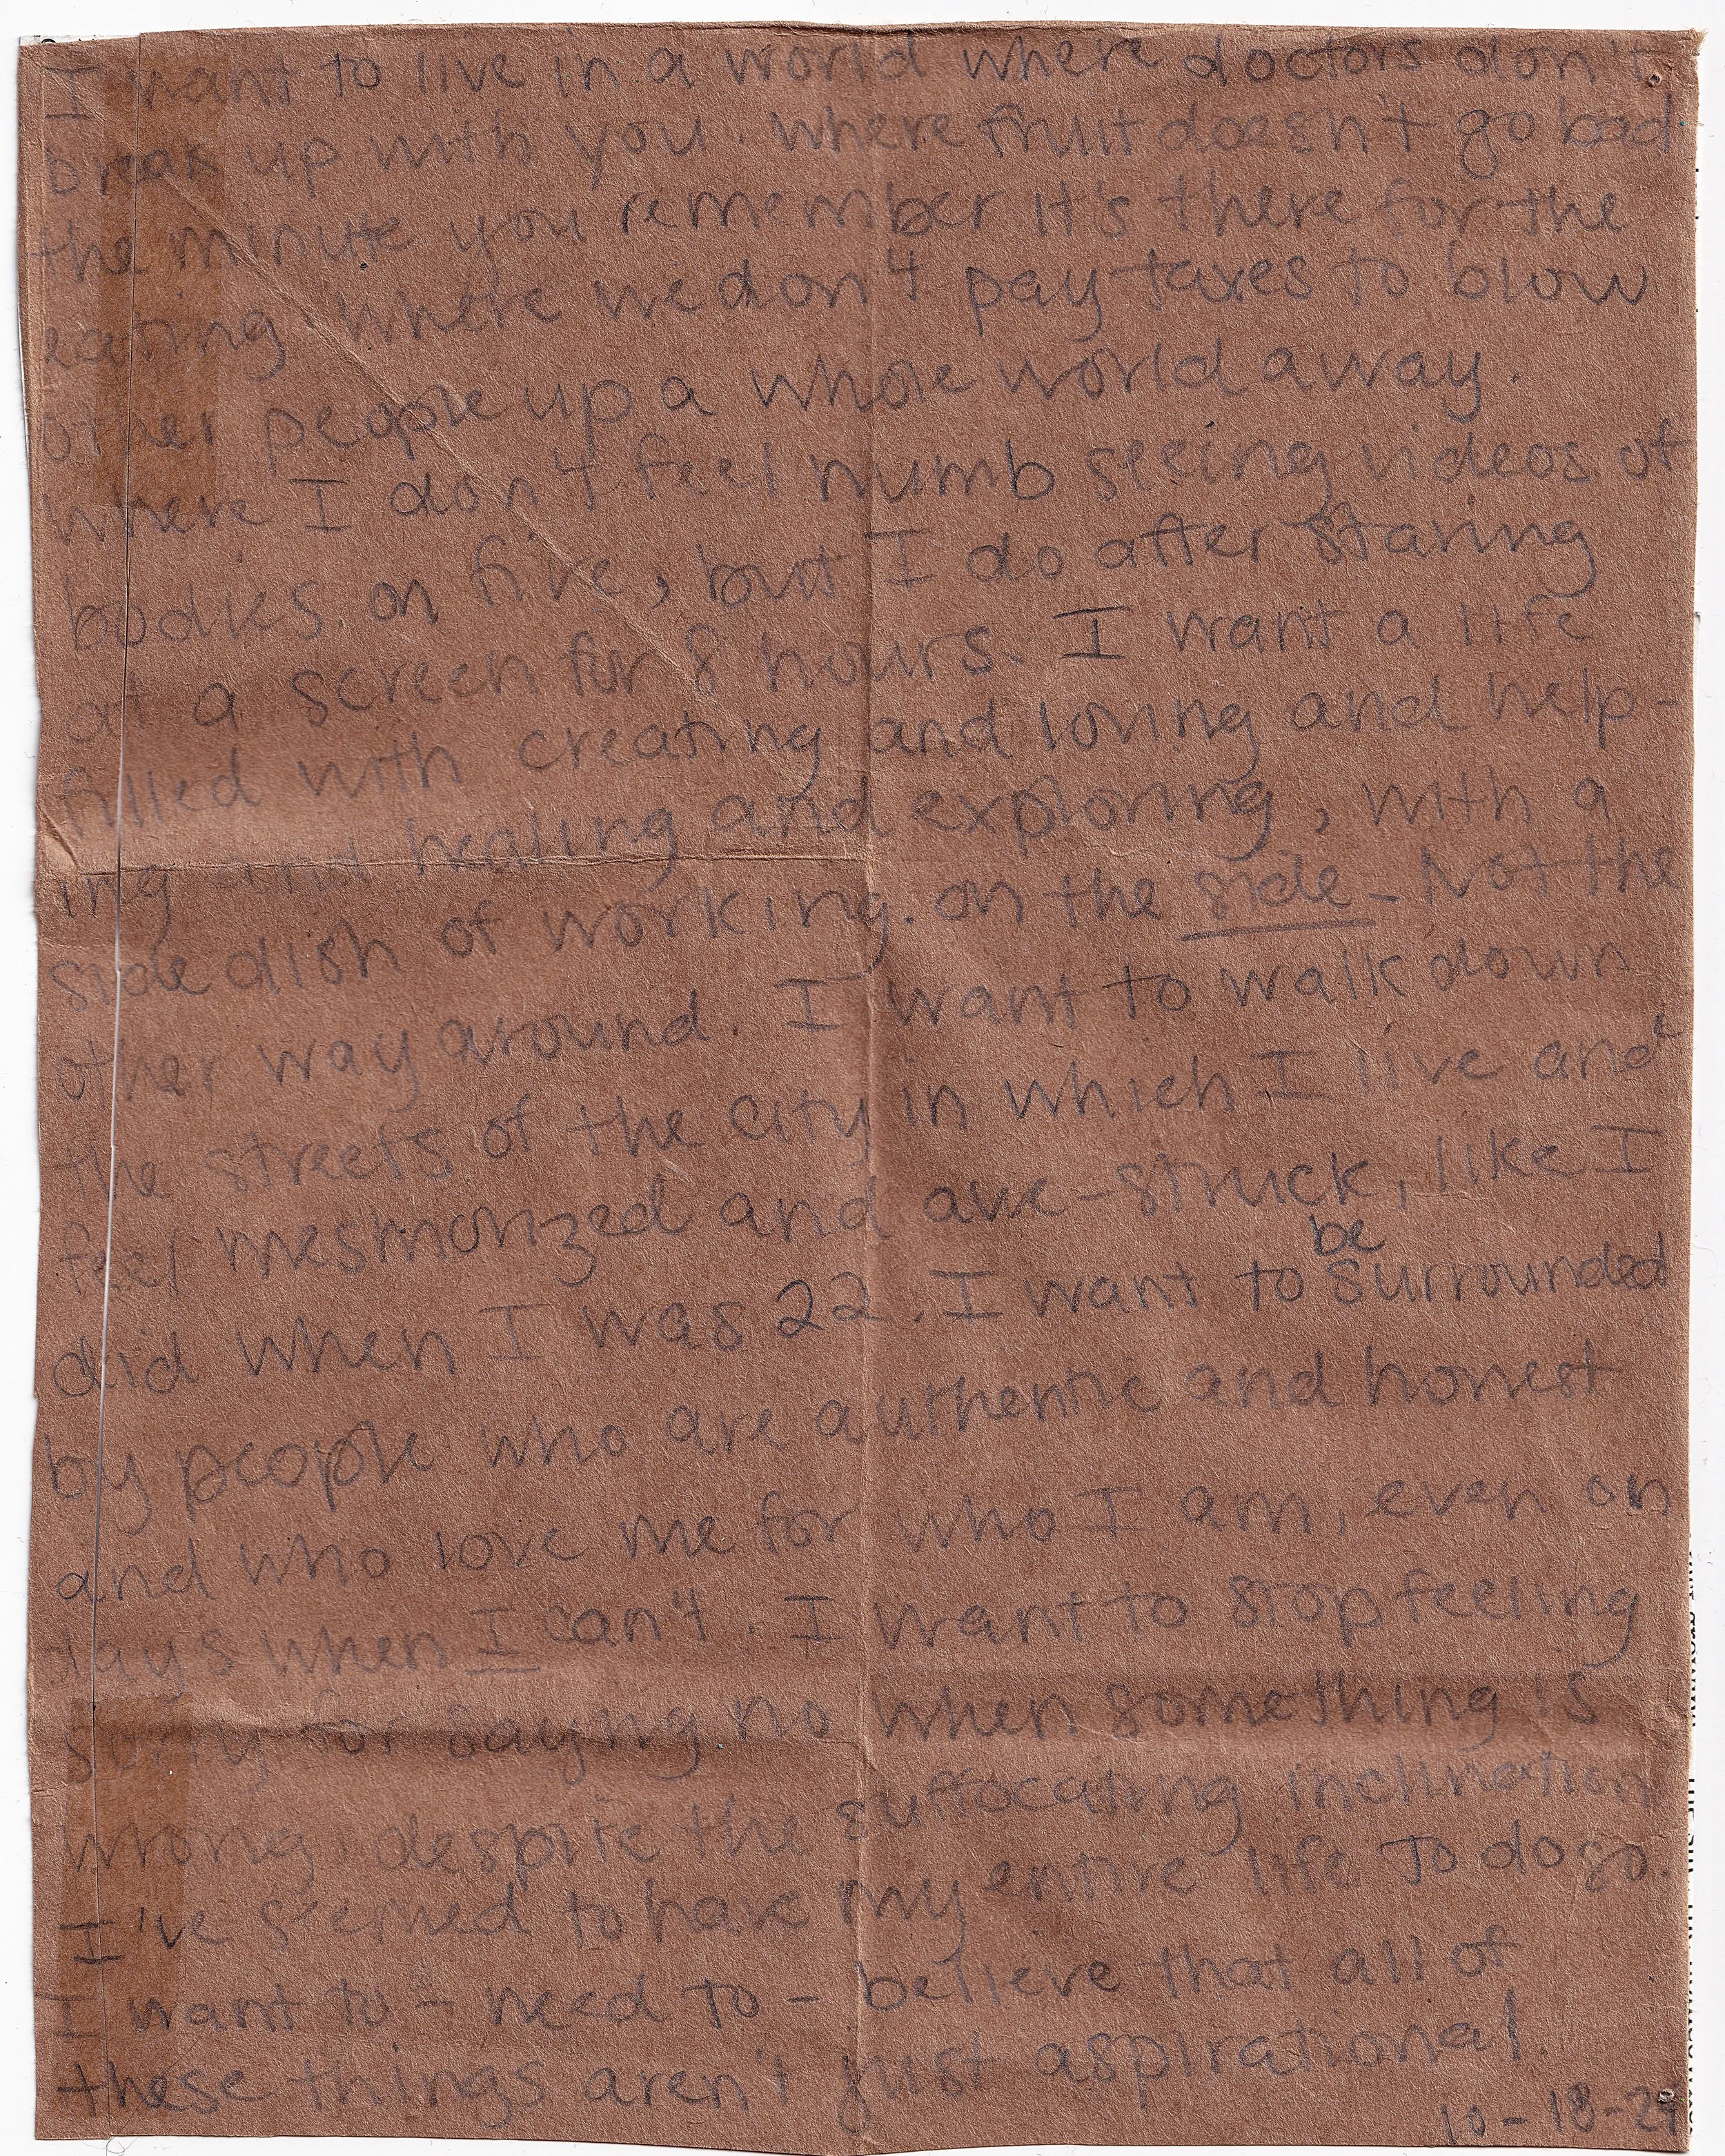 I want to live in a world where doctors don't
break up with you. where fruit doesn't go bad
the minute you remember it's there for the
eating. where we don't pay taxes to blow
other people up a whole world away.
where I don't feel numb seeing videos of
bodies on fire, but I do after staring
at a screen for 8 hours. I want a life
filled with creating and loving and help-
ing and healing and exploring, with a
side dish of working. on the side - Not the
other way around. I want to walk down
the streets of the city in which I live and
feel mesmorized and awe-struck, like I
did when I was 22. I want to be surrounded
by people who are authentic and honest
and who love me for who I am, even on
days when I can't. I want to stop feeling
sorry for saying no when something is
wrong, despite the suffocating inclination
I've seemed to have my entire life to do so.
I want to - need to - believe that all of
these things aren't just aspirational.
10-18-24